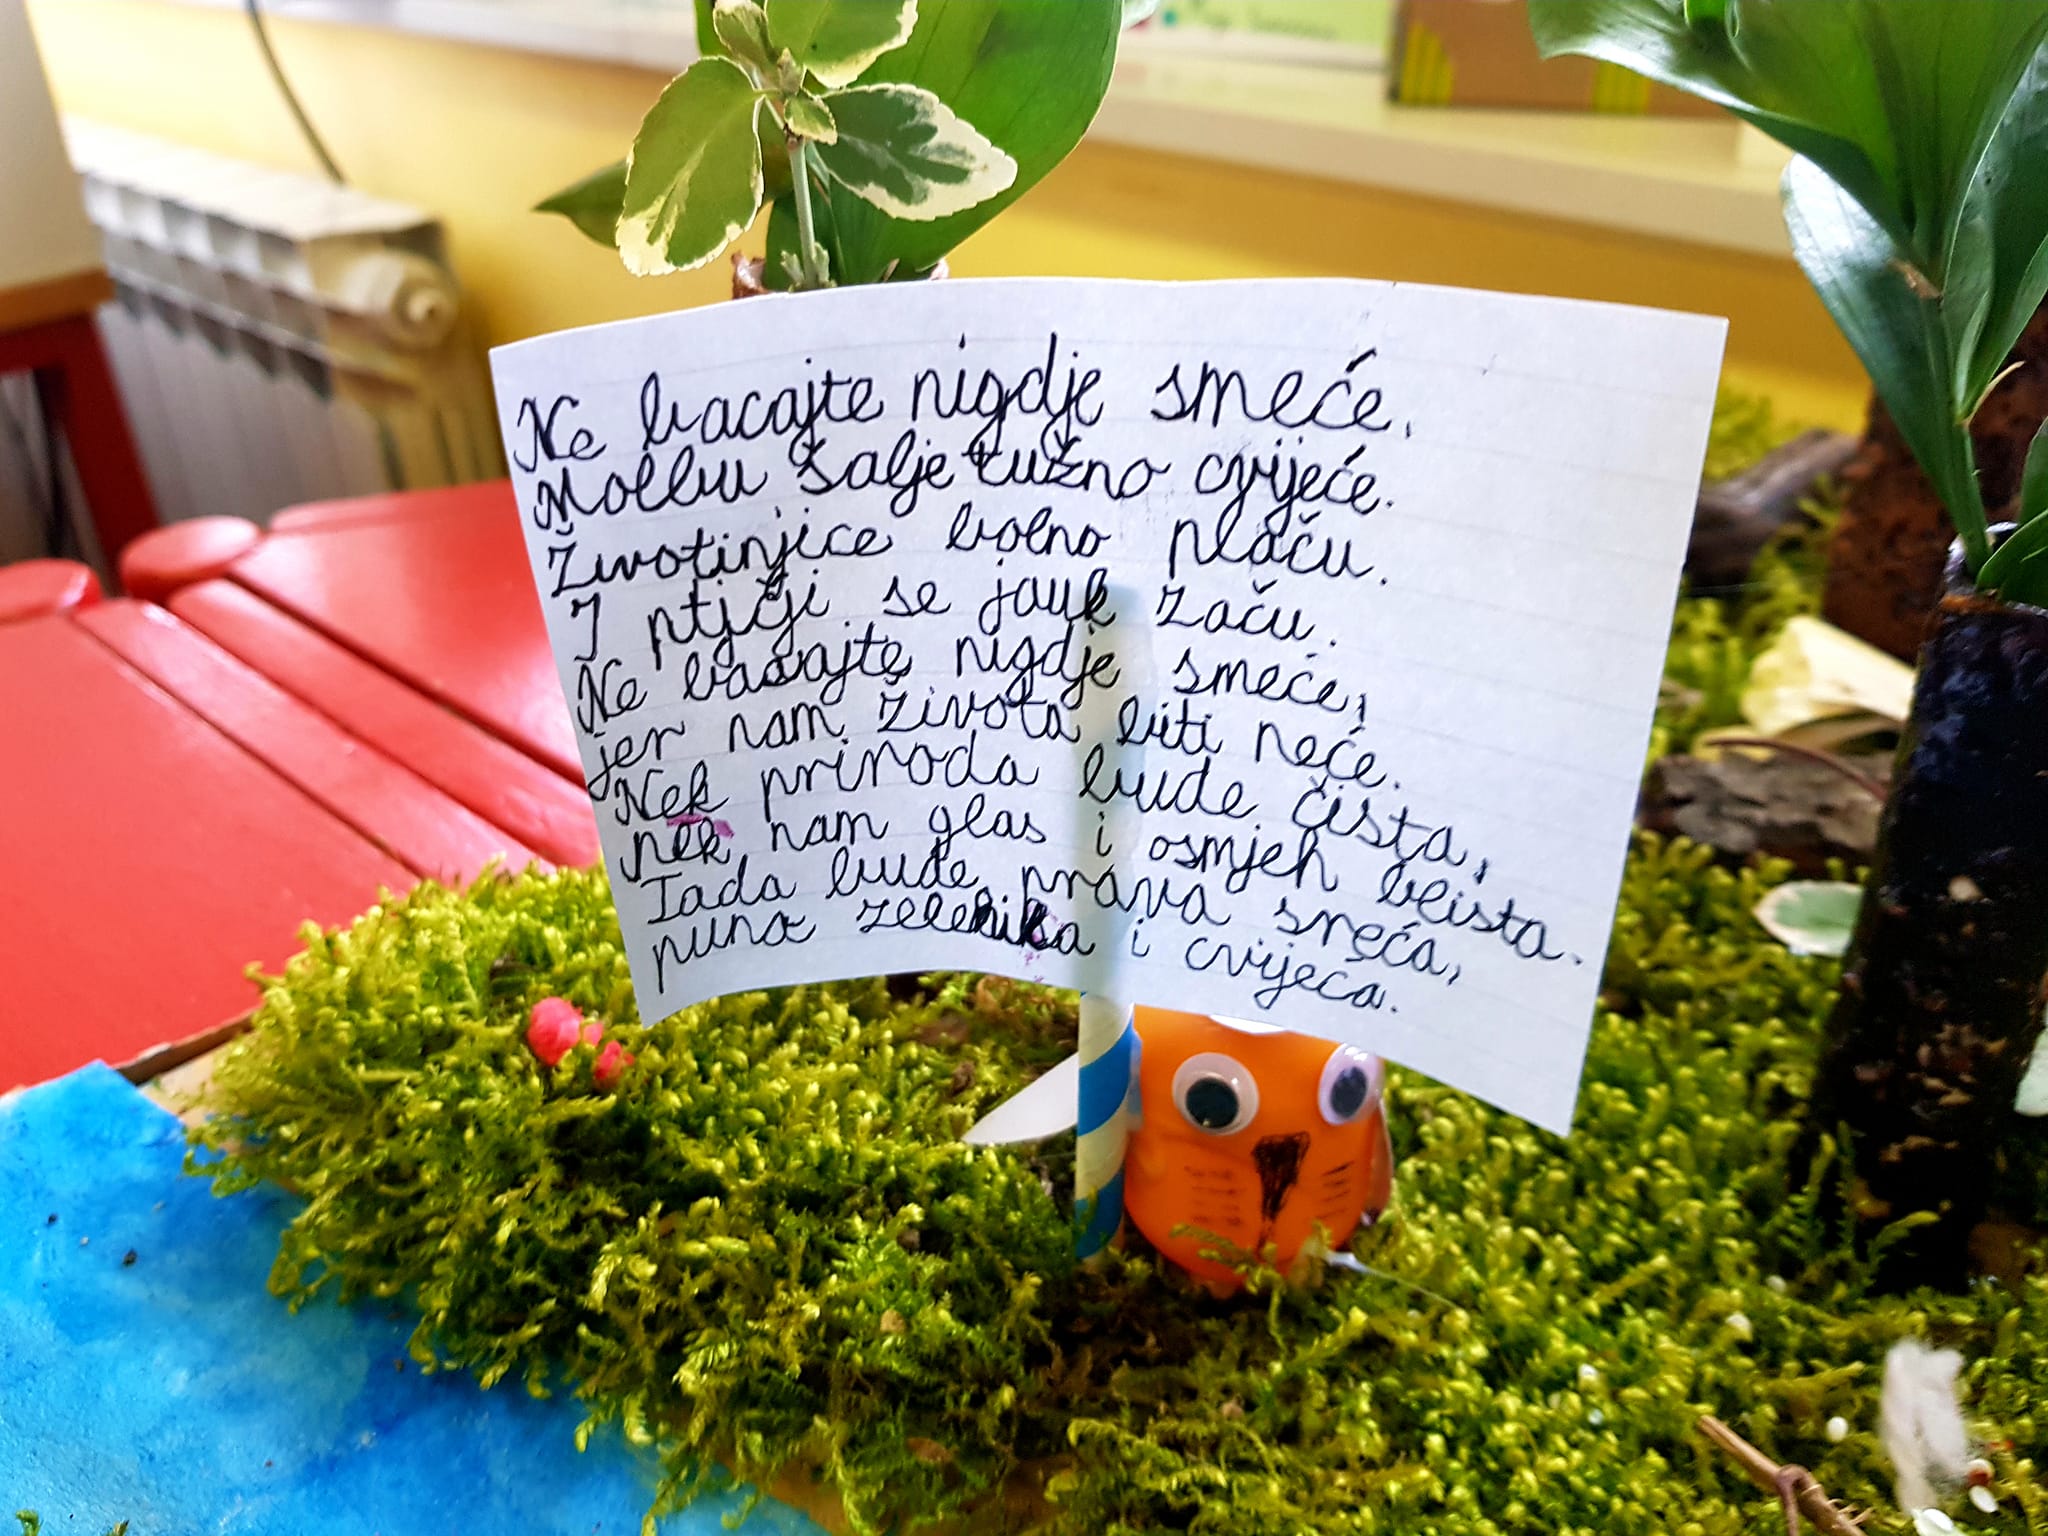 Ne bacajte nigdje smeće.
Molbu šalje tužno cvijeće.
Životinjice bolno plaču.
I ptičji se jauk začu.
Ne bacajte nigdje smeće,
jer nam života biti neće.
Nek priroda bude čista,
nek nam glas i osmjeh blista.
Tada bude prava sreća,
puna zelenika i cvijeća.